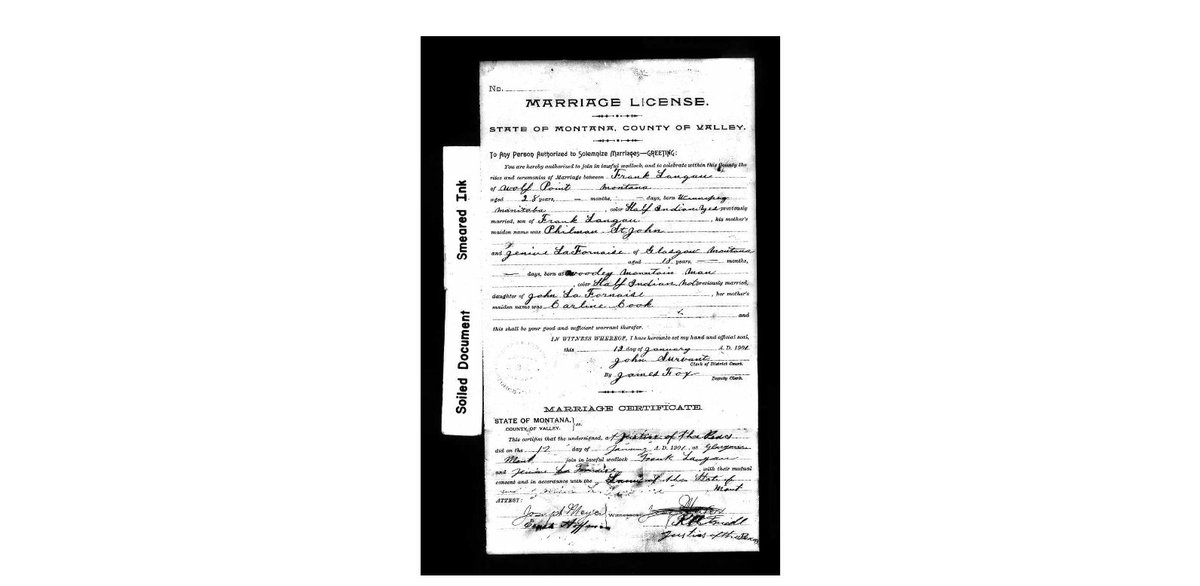 Smeared Ink
Soiled Document
No.
MARRIAGE LICENSE.
STATE OF MONTANA, COUNTY OF VALLEY.
To Any Person Authorized to Solemnize Marriages—GREETING:
You are hereby authorized to join in lawful wedlock, and to celebrate within this County the
rites and ceremonies of Marriage between Frank Langau
of Wolf Point Montana
aged 28 years, — months, — days, born Winnipeg
Manitoba, color Half Indian previously
married, son of Frank Langau, his mother's
maiden name was Philman St John
and Jenive LaFornaise of Glasgow Montana
aged 18 years, — — months,
— days, born at Woodey Mountain Man
, color Half Indian Not previously married,
daughter of John La Fornaise, her mother's
maiden name was Carline Cook
and
this shall be your good and sufficient warrant therefor.
IN WITNESS WHEREOF, I have hereunto set my hand and official seal,
this 12 day of January A. D. 1901.
John Survant
Clerk of District Court.
By James Fox
Deputy Clerk.
MARRIAGE CERTIFICATE.
STATE OF MONTANA, } ss.
COUNTY OF VALLEY.
This certifies that the undersigned, a Justice of the Peace
did on the 12 day of January A. D. 1901, at Glasgow
Mont join in lawful wedlock Frank Langau
and Jenive La Fornaise, with their mutual
consent and in accordance with the Laws of the State of
Mont
ATTEST:
Meyer } Witnesses
Justice of the Peace